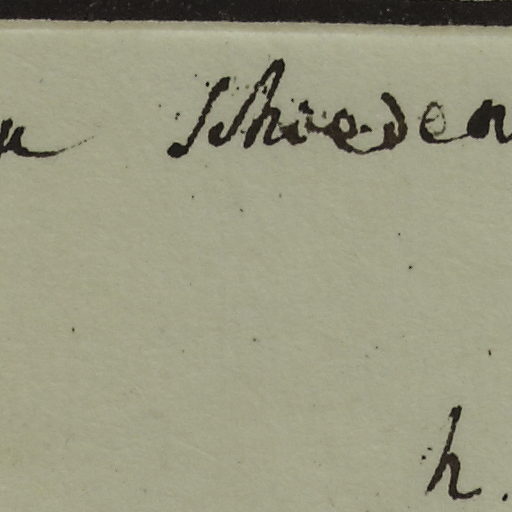 u Schieden
h.